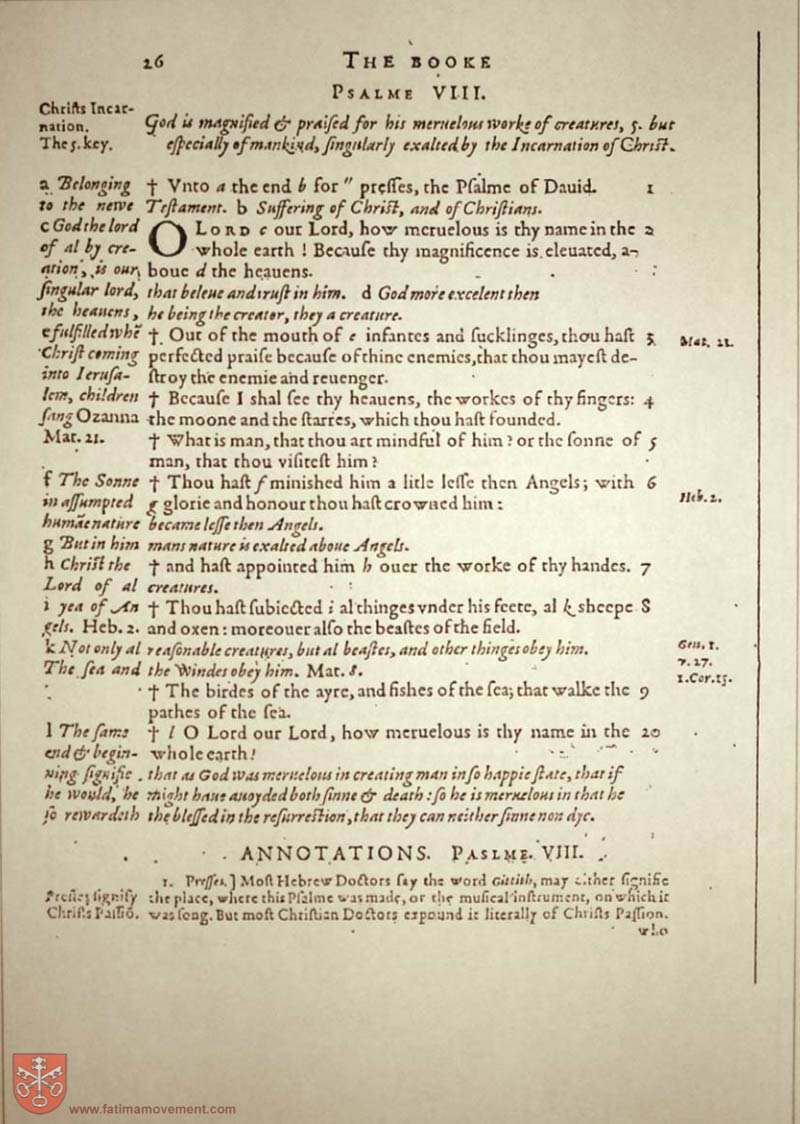 26 THE BOOKE
PSALME VIII.
Chriſts Incar-
nation.
The 5. key.
God is magnified & praiſed for his meruelous workes of creatures, 5. but
eſpecially of mankind, ſingularly exalted by the Incarnation of Chriſt.
a Belonging † Vnto a the end b for " preſſes, the Pſalme of Dauid. 1
to the newe Teſtament. b Suffering of Chriſt, and of Chriſtians.
c God the lord O LORD c our Lord, how meruelous is thy name in the 2
of al by cre- whole earth ! Becauſe thy magnificence is eleuated, a-
ation, is our boue d the heauens.
ſingular lord, that beleue and truſt in him. d God more excelent then
the heauens, he being the creator, they a creature.
e fulfilled whē † Out of the mouth of e infantes and ſucklinges, thou haſt 3 Mat. 21.
Chriſt coming perfected praiſe becauſe of thine enemies, that thou mayeſt de-
into Ieruſa- ſtroy the enemie and reuenger.
lem, children † Becauſe I shal ſee thy heauens, the workes of thy fingers: 4
ſang Ozanna the moone and the ſtarres, which thou haſt founded.
Mat. 21. † What is man, that thou art mindful of him? or the ſonne of 5
man, that thou viſiteſt him?
f The Sonne † Thou haſt f minished him a litle leſſe then Angels; with 6 Heb. 2.
in aſſumpted g glorie and honour thou haſt crowned him:
humāe nature became leſſe then Angels.
g But in him mans nature is exalted aboue Angels.
h Chriſt the † and haſt appointed him h ouer the worke of thy handes. 7
Lord of al creatures.
i yea of An † Thou haſt ſubiected i al thinges vnder his feete, al k ſheepe 8
gels. Heb. 2. and oxen: moreouer alſo the beaſtes of the field.
k Not only al reaſonable creatures, but al beaſtes, and other thinges obey him. Gen. 1.
The ſea and the Windes obey him. Mat. 8. 7. 27.
1. Cor. 15.
† The birdes of the ayre, and fishes of the ſea; that walke the 9
pathes of the ſea.
l The ſame † l O Lord our Lord, how meruelous is thy name in the 10
end & begin- whole earth!
ning ſignifie that as God was meruelous in creating man in ſo happie ſtate, that if
he would, he might haue auoyded both ſinne & death: ſo he is meruelous in that he
ſo rewardeth the bleſſed in the reſurrection, that they can neither ſinne non dye.
ANNOTATIONS. PASLME. VIII.
1. Preſſes.] Moſt Hebrew Doctors ſay the word Gittith, may either ſignifie
Preſſes ſignify the place, where this Pſalme was made, or the muſical inſtrument, on which it
Chriſts Paſſiō. was ſong. But moſt Chriſtian Doctors expound it literally of Chriſts Paſſion.
who
www.fatimamovement.com